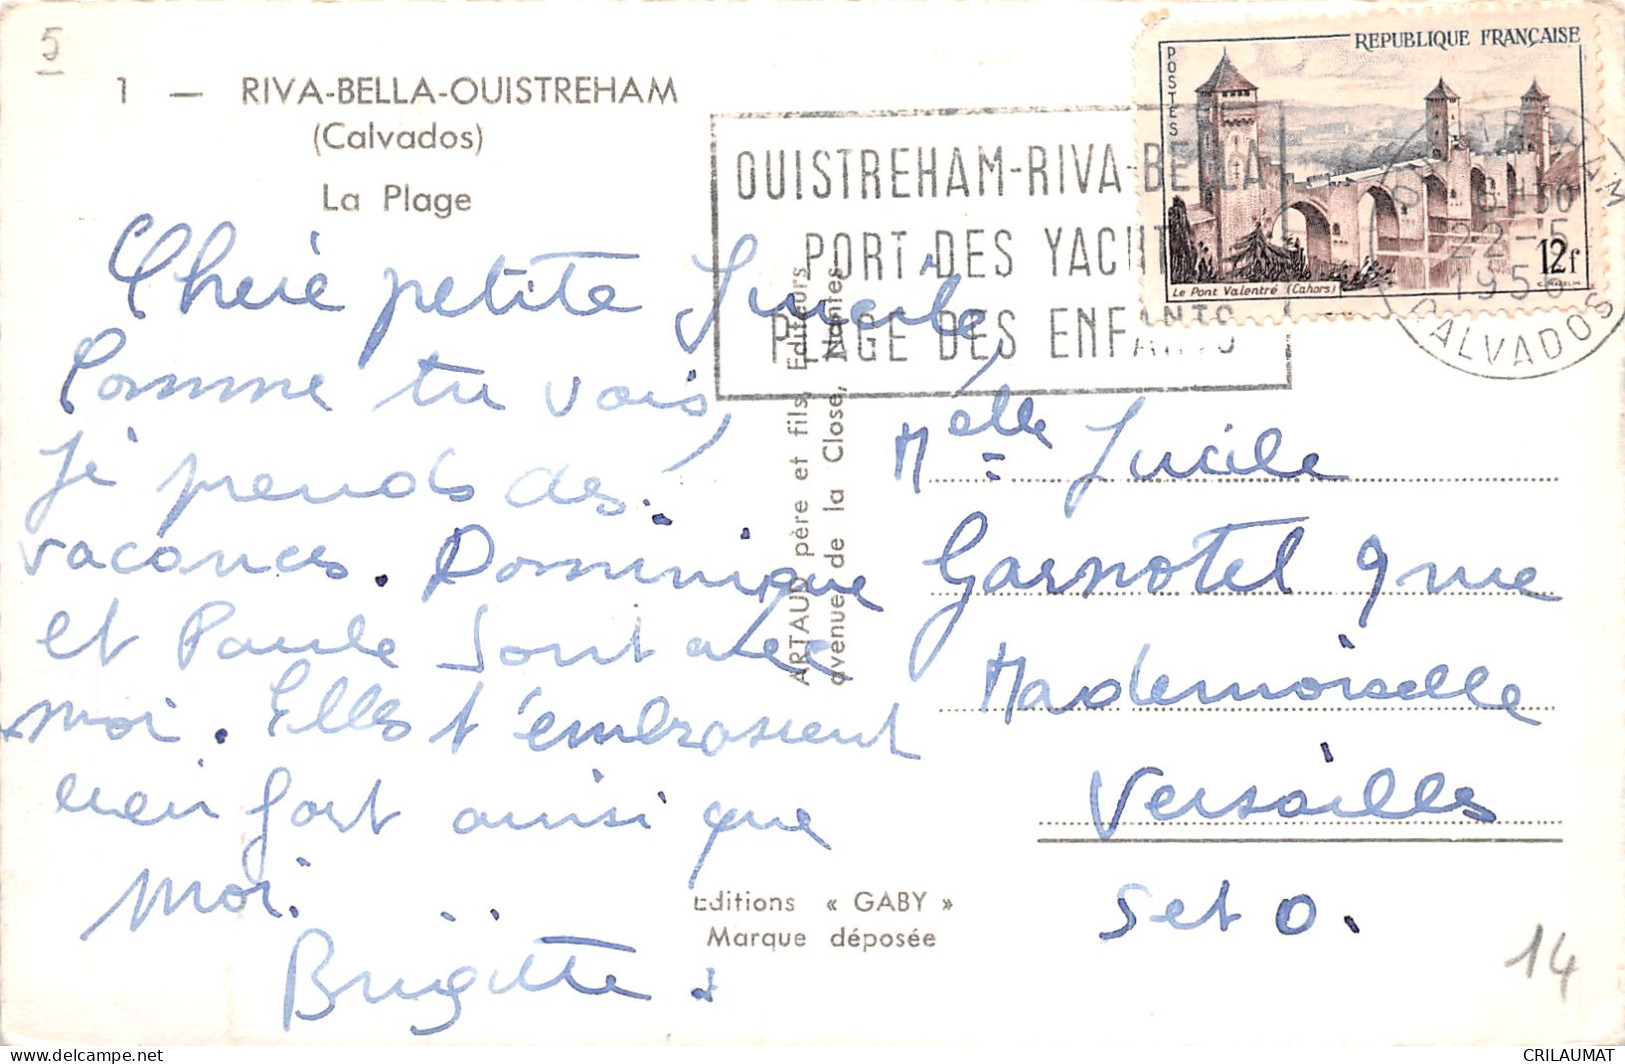 5
1 — RIVA-BELLA-OUISTREHAM
(Calvados)
La Plage
Cherie petite Lucile,
Comme tu vois,
je prends des
vacances. Dominique
et Paule sont avec
moi. Elles t'embrassent
bien fort ainsi que
moi.
Brigitte.
ARTAUD père et fils, Editeurs
avenue de la Close, Nantes
Editions « GABY »
Marque déposée
OUISTREHAM-RIVA-BELLA
PORT DES YACHTS
PLAGE DES ENFANTS
REPUBLIQUE FRANÇAISE
POSTES
Le Pont Valentré (Cahors)
12f
22-5
CALVADOS
Melle Lucile
Garnotel 9 rue
Mademoiselle
Versailles
S et O.
14
CRILAUMAT